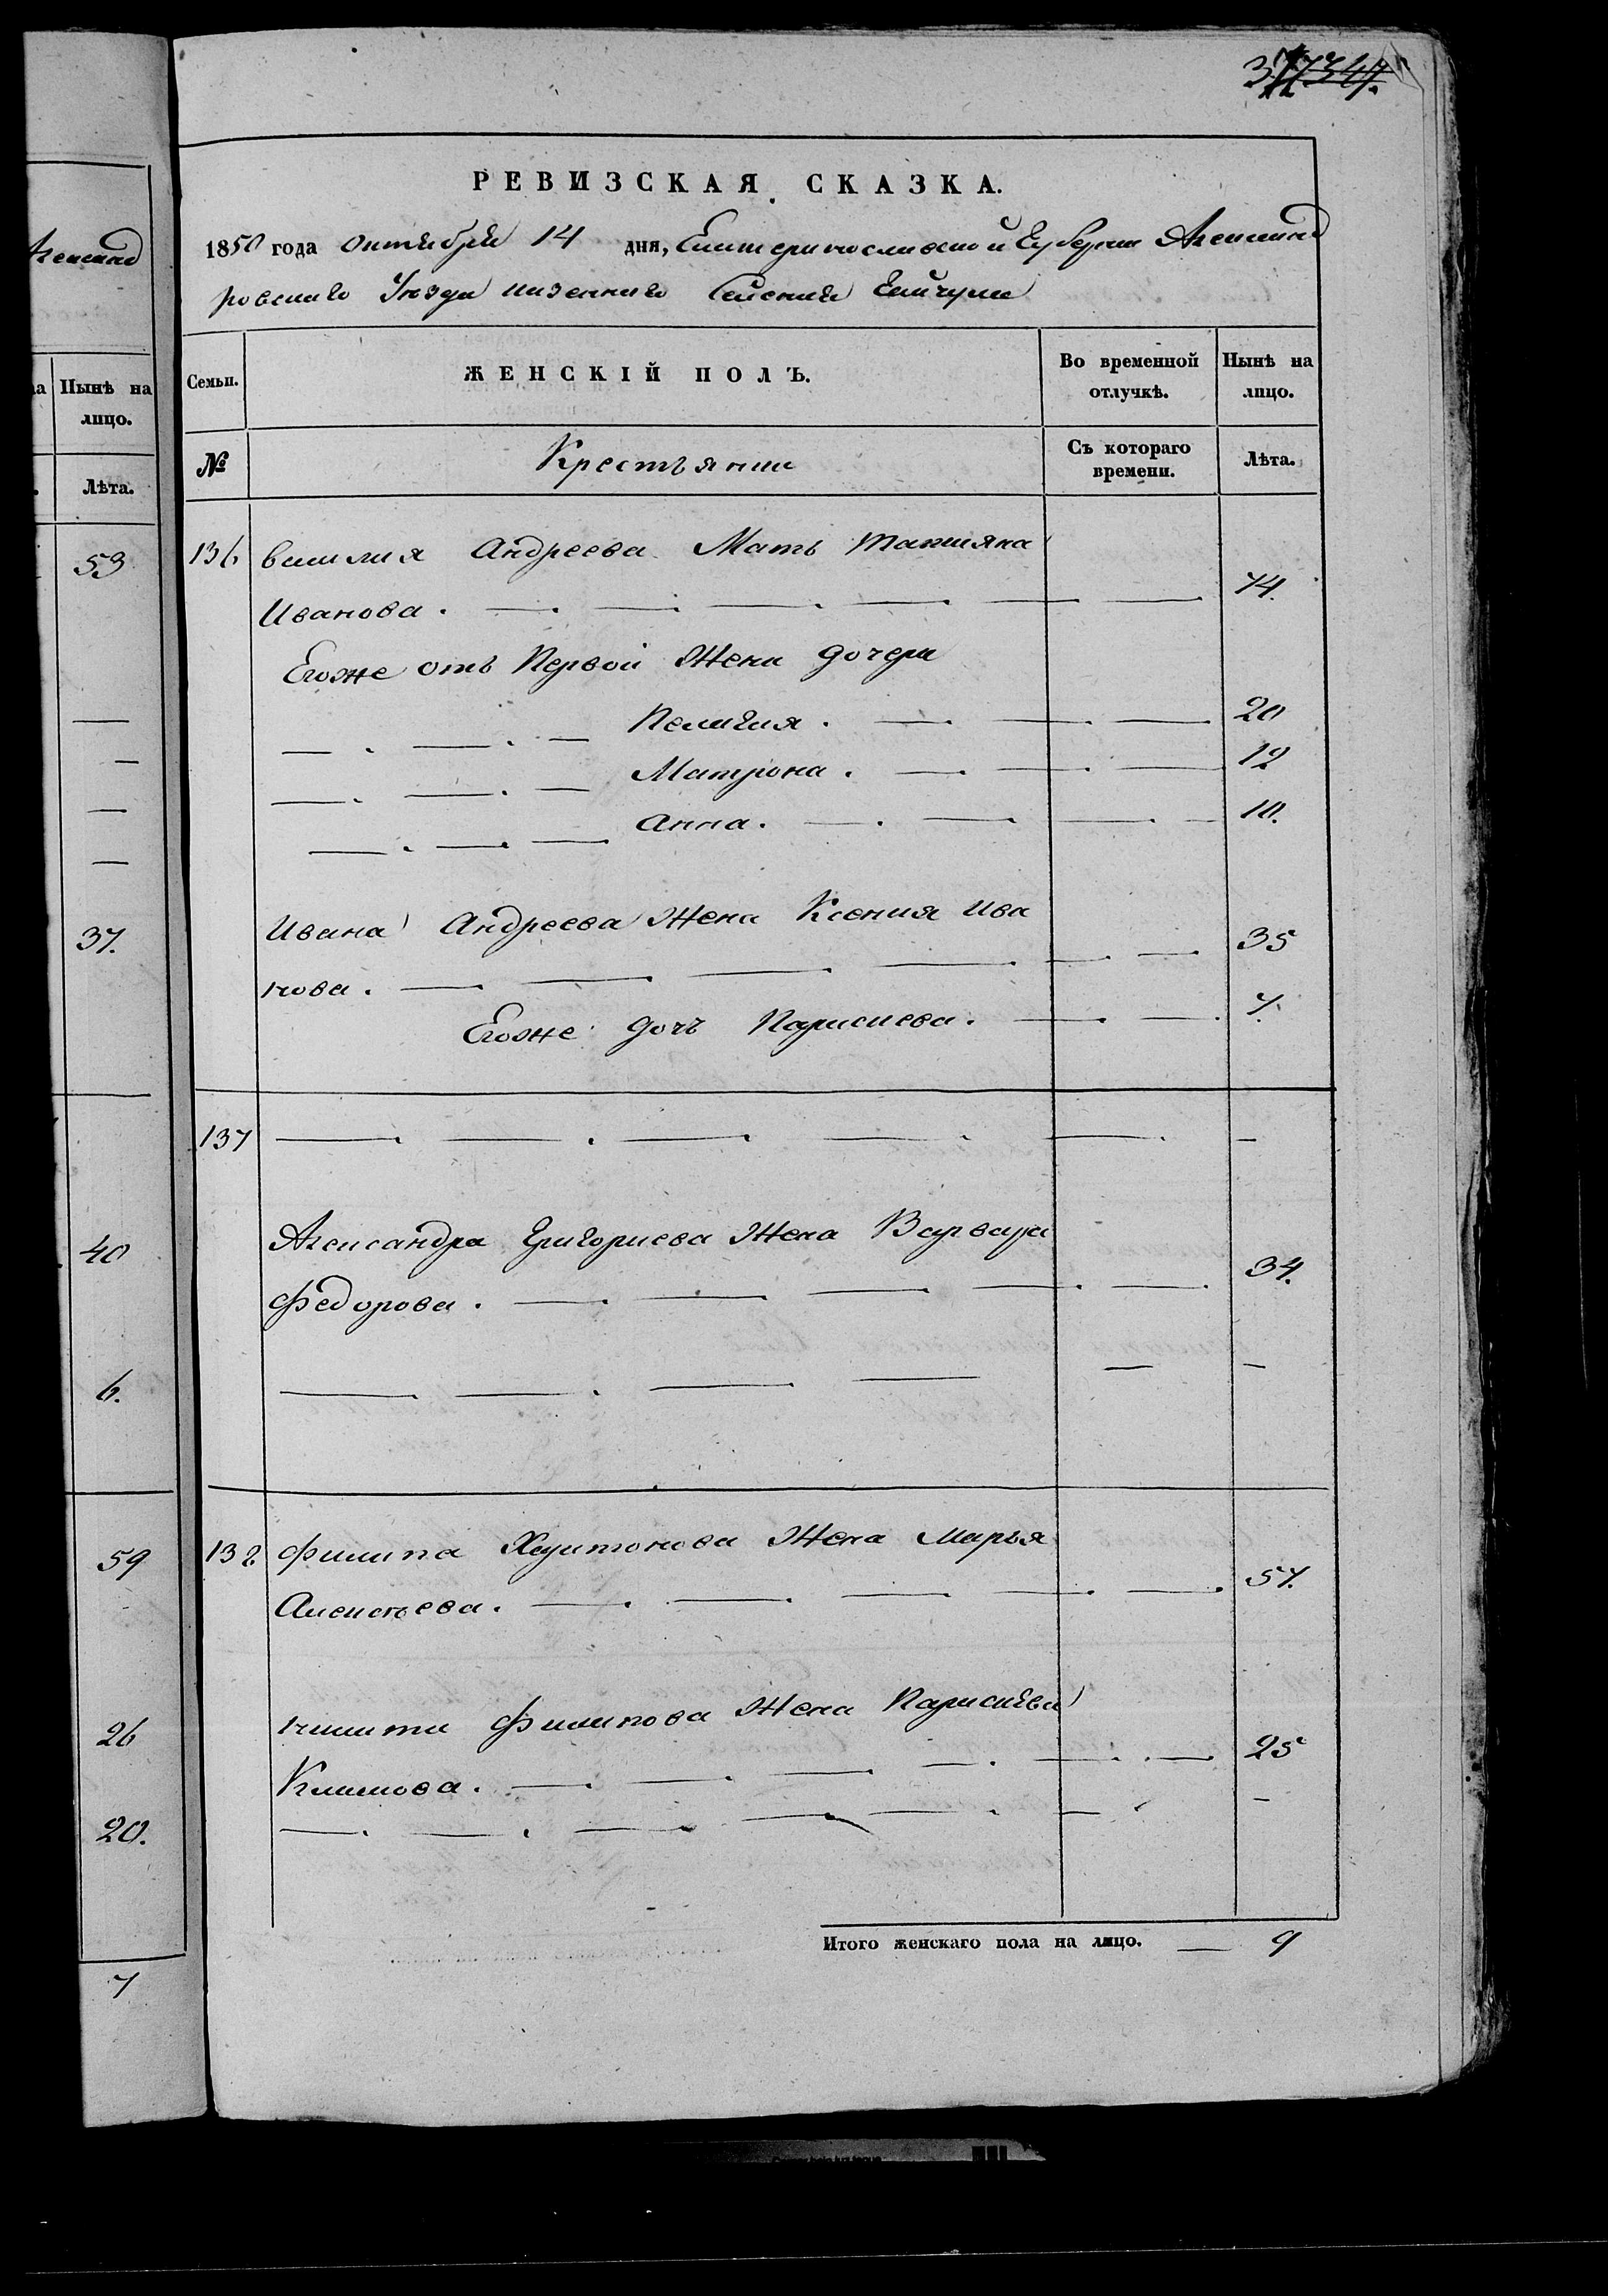 РЕВИЗСКАЯ СКАЗКА.
1850 года октября 14 дня, Екатеринославской Губернии Александ
ровскаго Уезда казеннаго Селения Гайчула
Александ
Нынѣ на лицо.
Лѣта.
53
37.
40
6.
59
26
20.
7
Семьи. ЖЕНСКІЙ ПОЛЪ. Во временной отлучкѣ. Нынѣ на лицо.
№ Крестьянки Съ котораго времени. Лѣта.
136 Василия Андреева Мать Татияна
Иванова. 74.
Егоже отъ Первой Жены дочери
Пелагия. 20
Матрона. 12
Анна. 10.
Ивана Андреева Жена Ксения Ива
нова. 35
Егоже дочь Парасκева. 7.
137
Александра Григориева Жена Варвара
Федорова. 34.
138 Филипа Харитонова Жена Марья
Алексѣева. 57.
Никиты Филипова Жена Парасκева
Климова. 25
Итого женскаго пола на лицо. 9